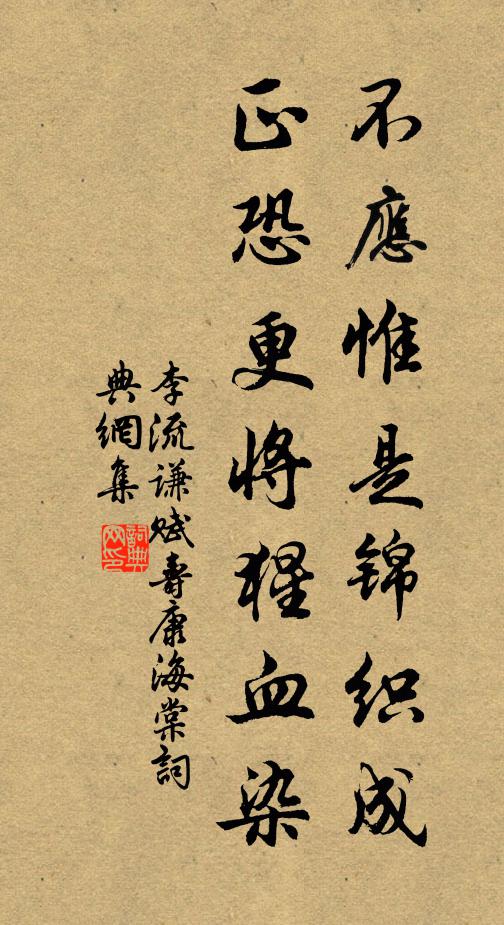 不應惟是锦织成
正恐更将猩血染
李流谦赋壽康海棠詞
典網集
詞典网印